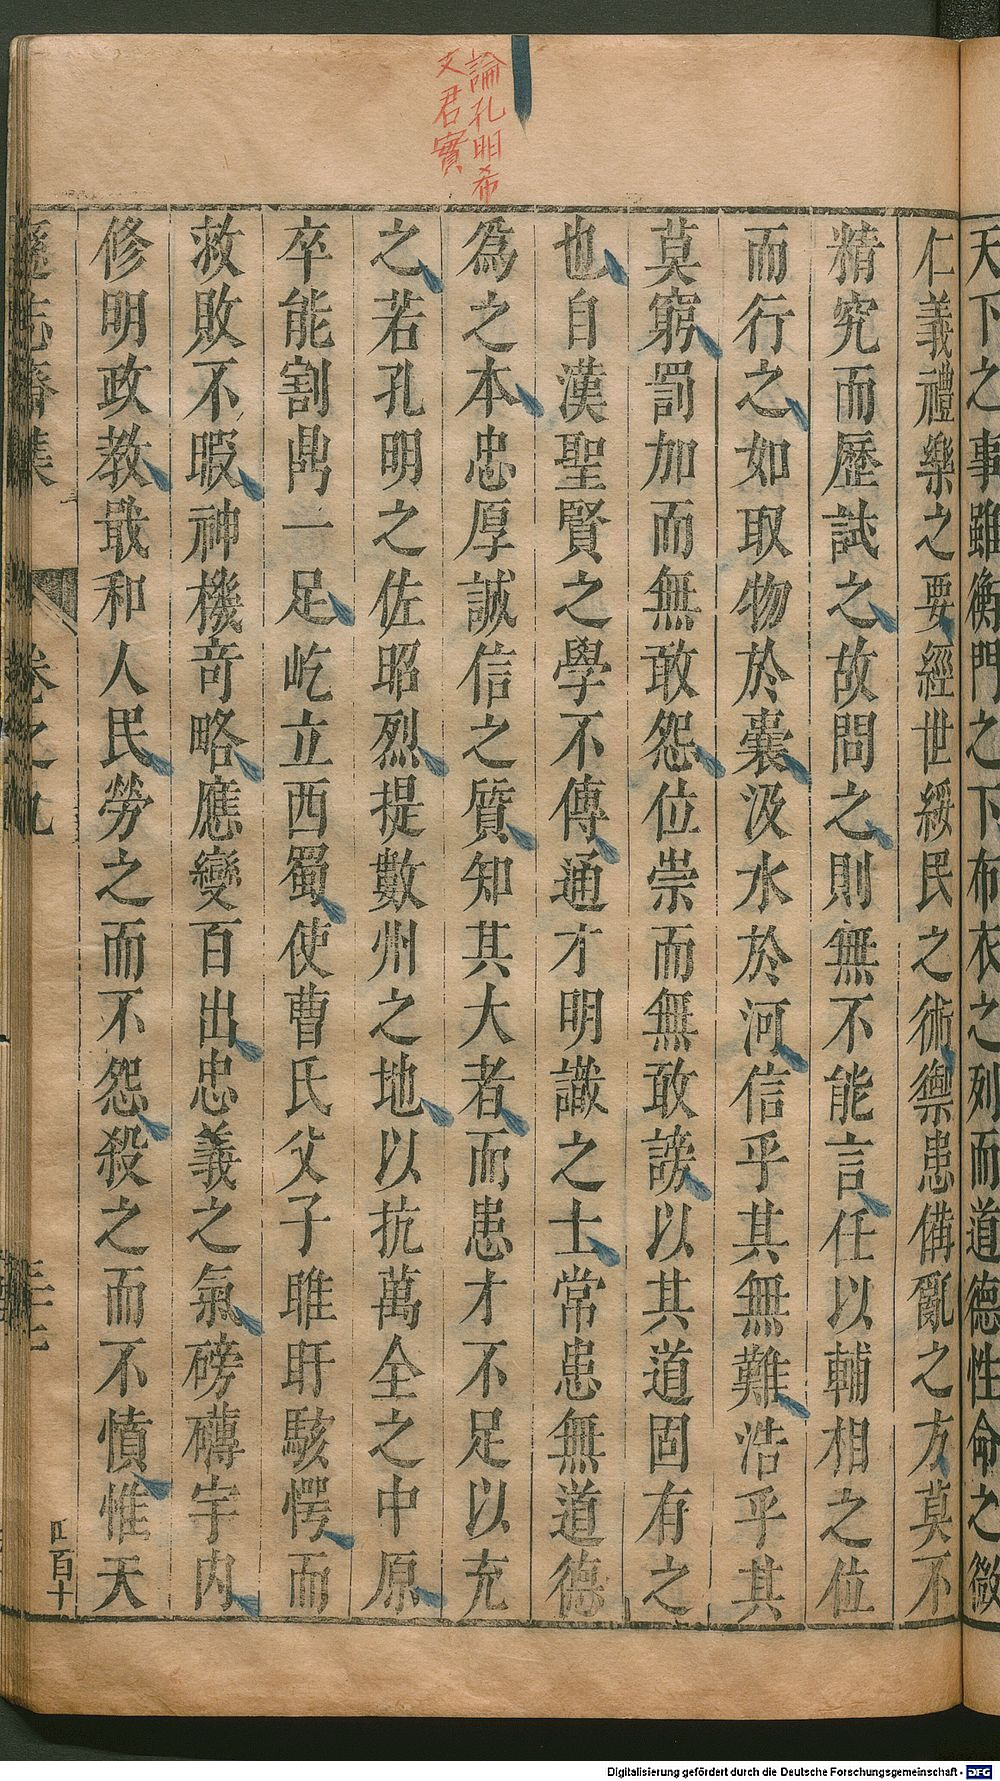 論孔明希
文君實
天下之事雖衡門之下布衣之列而道德性命之微
仁義禮樂之要經世綏民之術禦患備亂之方莫不
精究而歷試之故問之則無不能言任以輔相之位
而行之如取物於囊汲水於河信乎其無難浩乎其
莫窮罰加而無敢怨位崇而無敢謗以其道固有之
也自漢聖賢之學不傳通才明識之士常患無道德
為之本忠厚誠信之質知其大者而患才不足以充
之若孔明之佐昭烈提數州之地以抗萬全之中原
卒能割鼎一足屹立西蜀使曹氏父子睢盱駭愕而
救敗不暇神機奇略應變百出忠義之氣磅礴宇内
修明政教戢和人民勞之而不怨殺之而不憤惟天
遜志齋集 卷之九
百十
Digitalisierung gefördert durch die Deutsche Forschungsgemeinschaft - DFG